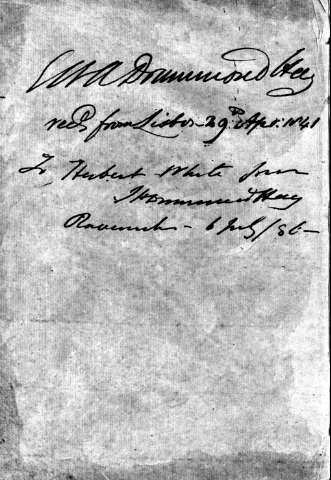 EWA Drummond Hay
recd from Lisbon 29th Apr: 1841
To Herbert White from
JHDrummondHay
6 July/86